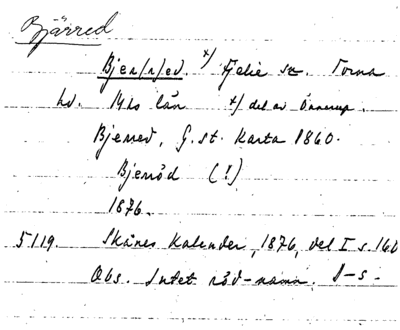 Bjärred
Bjer/r/ed. x/ Fjelie sn. Torna
hd. Mhs län x/ del av Önnerup.
Bjerred, G.st. Karta 1860.
Bjeröd (!)
1876.
5119. Skånes Kalender, 1876, del I s. 160
Obs. Intet röd-namn. I-s-